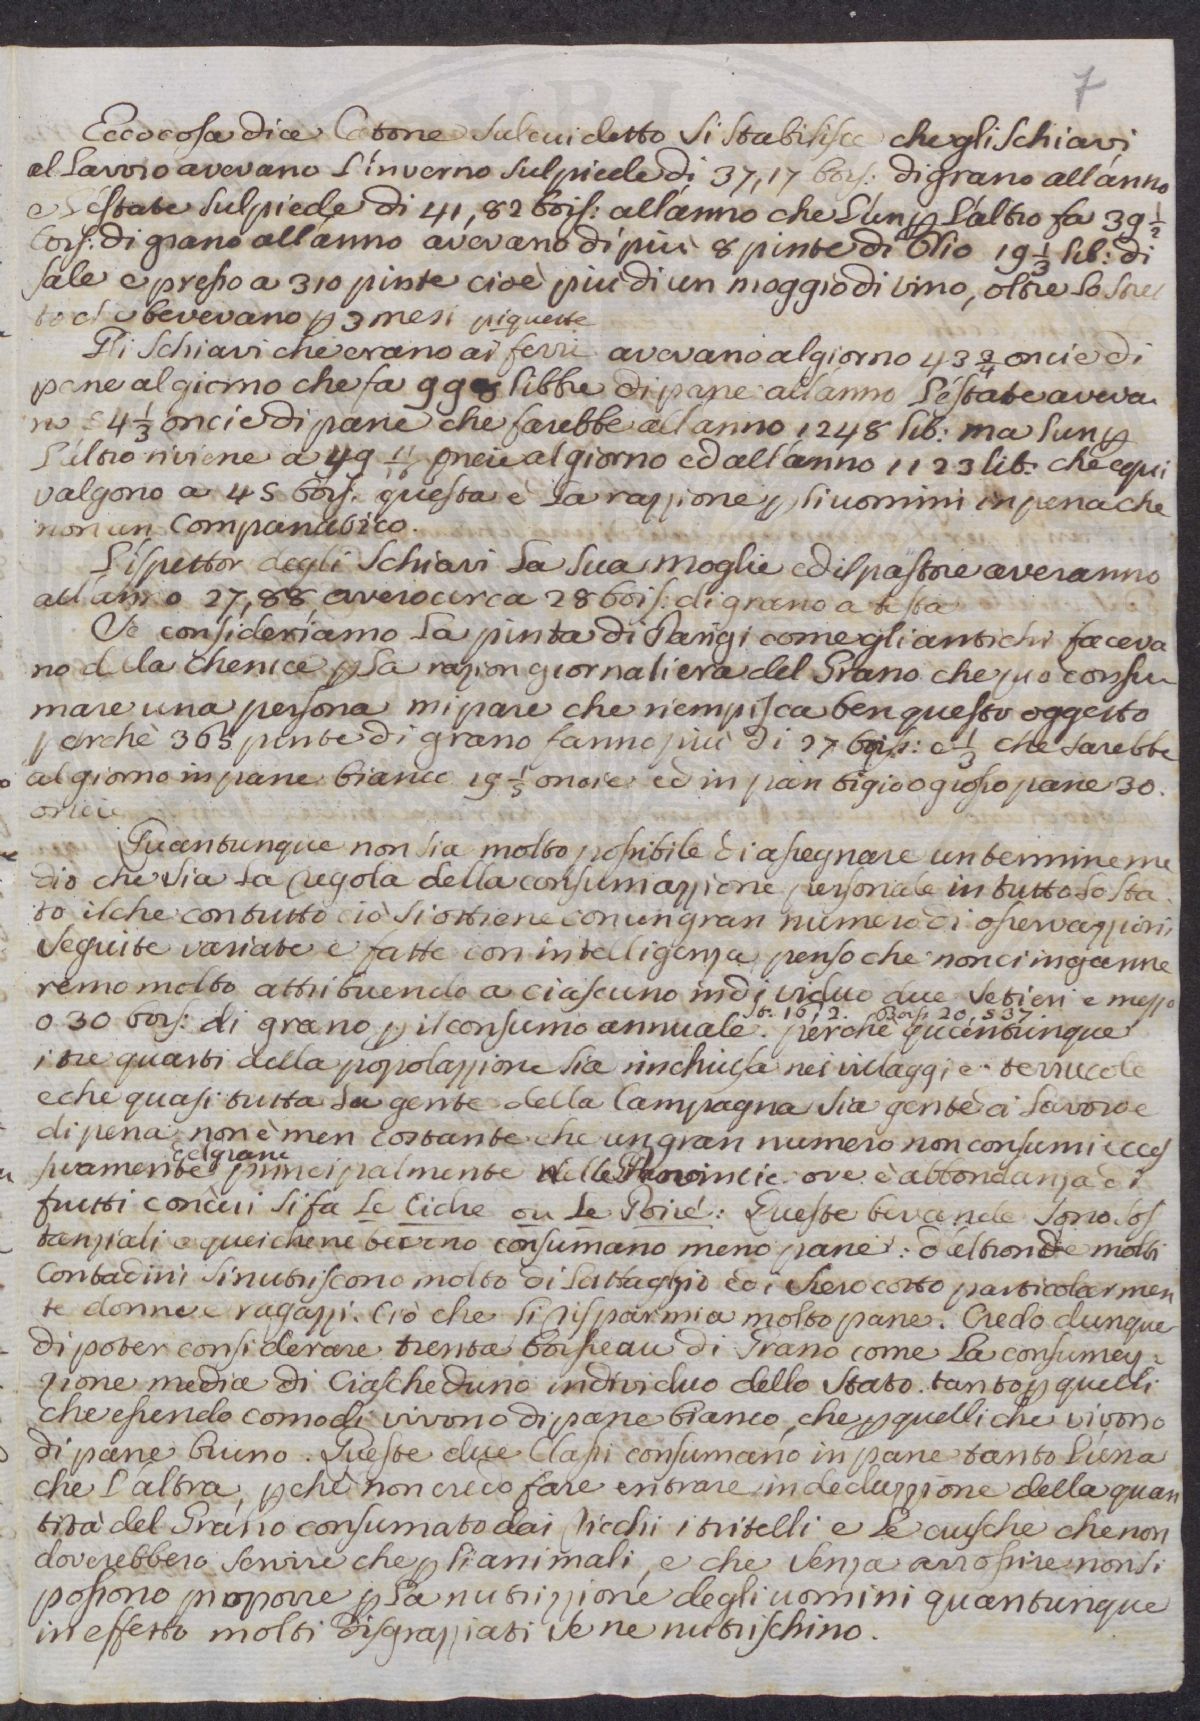 7
Ecco cosa dice Catone sul cui detto si stabilisce che gli schiavi
al lavoro avevano l'inverno sul piede di 37,17 bois: di grano all'anno
e l'estate sul piede di 41,82 bois: all'anno che l'un p l'altro fa 39 1/2
bois: di grano all'anno avevano di più 8 pinte di Olio 19 1/3 lib: di
sale e presso a 310 pinte cioè più di un moggio di vino, oltre lo
bevevano p 3 mesi piquette
Gli schiavi che erano ai ferri avevano al giorno 43 3/4 oncie di
pane al giorno che fa 998 libbre di pane all'anno l'estate aveva
no 54 1/3 oncie di pane che farebbe all'anno 1248 lib: ma l'un p
l'altro riviene a 49 oncie al giorno ed all'anno 1123 lib: che equi
valgono a 45 bois. questa è la razzione p li uomini in pena che
non an companatico.
L'ispettor degli schiavi la sua moglie ed il pastore averanno
all'anno 27,88, avero circa 28 bois: di grano a testa
Se consideriamo la pinta di Parigi come gli antichi faceva
no della chenice p la razion giornaliera del Grano che può consu
mare una persona mi pare che riempisca ben questo oggetto
perchè 365 pinte di grano fanno più di 27 bois: e 1/3 che sarebbe
al giorno in pane bianco 19 1/5 oncie ed in pan bigio o grosso pane 30.
oncie
Quantunque non sia molto possibile di assegnare un termine me
dio che sia la regola della consumazzione personale in tutto lo sta
to il che con tutto ciò si ottiene con un gran numero di osservazzioni
seguite variate e fatte con intelligenza, penso che non ci inganne
remo molto attribuendo a ciascuno individuo due setieri e mezzo
St. 16,2. Bois 20,537.
o 30 bois: di grano p il consumo annuale. perchè quantunque
i tre quarti della popolazzione sia rinchiusa nei villaggi e terricole
e che quasi tutta la gente della Campagna sia gente di lavoro e
di pena, non è men costante che un gran numero non consumi ecces
del grane
sivamente principalmente nelle Provincie ove è abbondanza di
frutti con cui si fa Le Cidre ou Le Poiré: Queste bevande sono sos
tanziali e quei che ne bevono consumano meno pane: d'altronde molti
Contadini si nutriscono molto di lattaggio e di siero cotto particolarmen
te donne e ragazzi. Ciò che si risparmia molto pane. Credo dunque
di poter considerare trenta boisseau di Grano come la consumaz=
zione media di Ciascheduno individuo dello Stato. tanto p quelli
che essendo comodi vivono di pane bianco, che p quelli che vivono
di pane bruno. Queste due Classi consumano in pane tanto l'una
che l'altra, p chè non credo fare entrare in deduzzione della quan
tità del Grano consumato dai Ricchi i tritelli e le crusche che non
doverebbero servire che p li animali, e che senza arrossire non si
possono proporre p la nutrizzione degli uomini quantunque
in effetto molti disgrazziati se ne nutrischino.